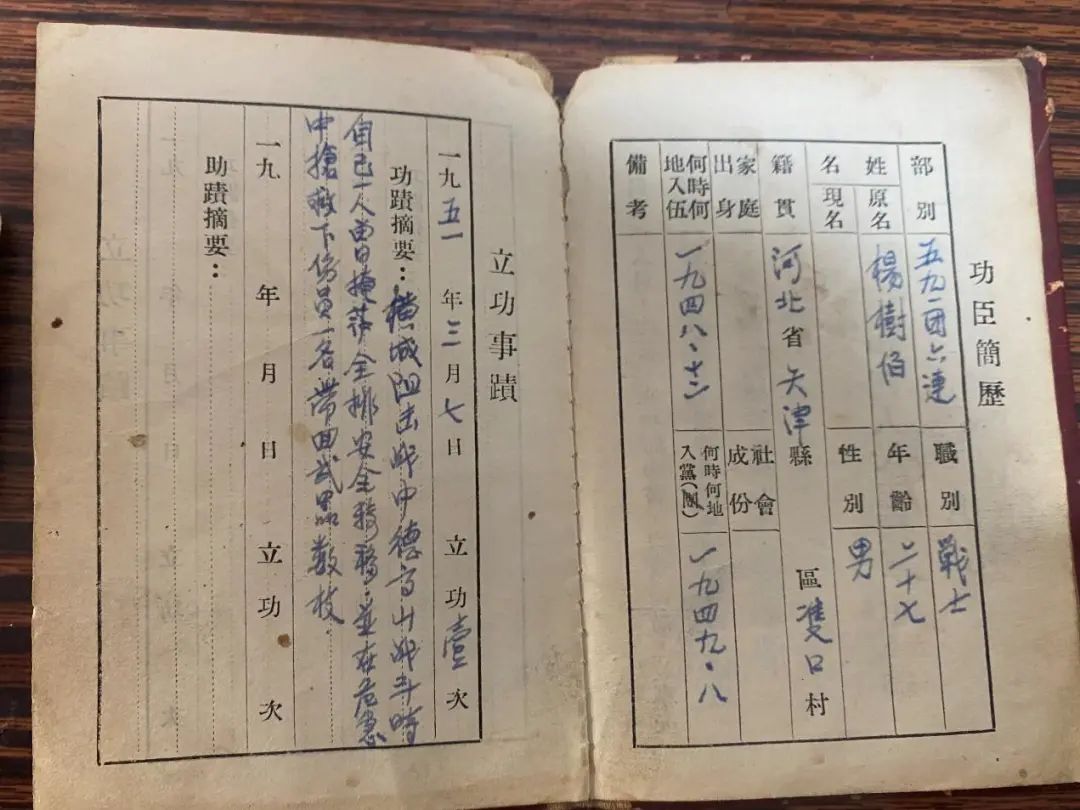 功臣簡歷
部別 五九一团六連 職別 戰士
姓名 原名 楊樹伯 年齡 二十七
現名 性別 男
籍貫 河北省天津縣 區 隻口村
家庭出身 社會成份
何時何地入伍 一九四八·十二 何時何地入黨(團) 一九四九·八
備考
立功事蹟
一九五一年三月七日 立功壹次
功蹟摘要：横城阻击战中德高山战斗时
自己一人曾掩护全排安全转移·並在危急
中搶救下伤员一名带回武器数枝
一九 年 月 日 立功 次
功蹟摘要：